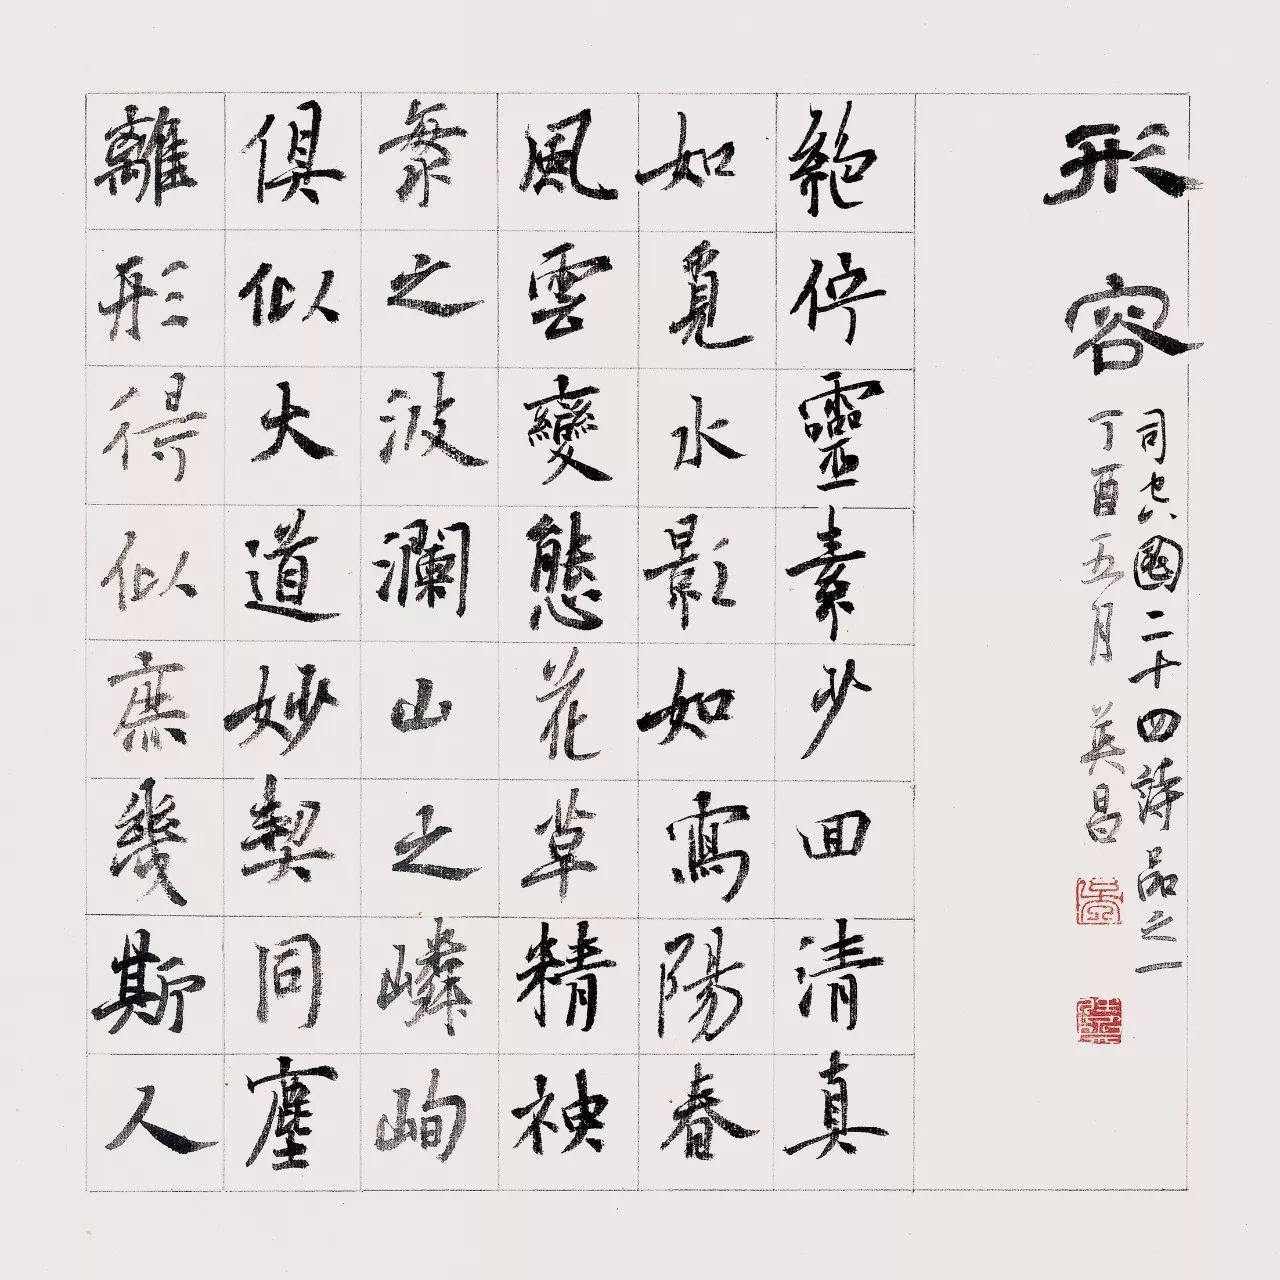 形容
司空圖二十四詩品之一
丁酉五月 英昌
絕佇靈素少回清真
如覓水影如寫陽春
風雲變態花草精神
海之波瀾山之嶙峋
俱似大道妙契同塵
離形得似庶幾斯人